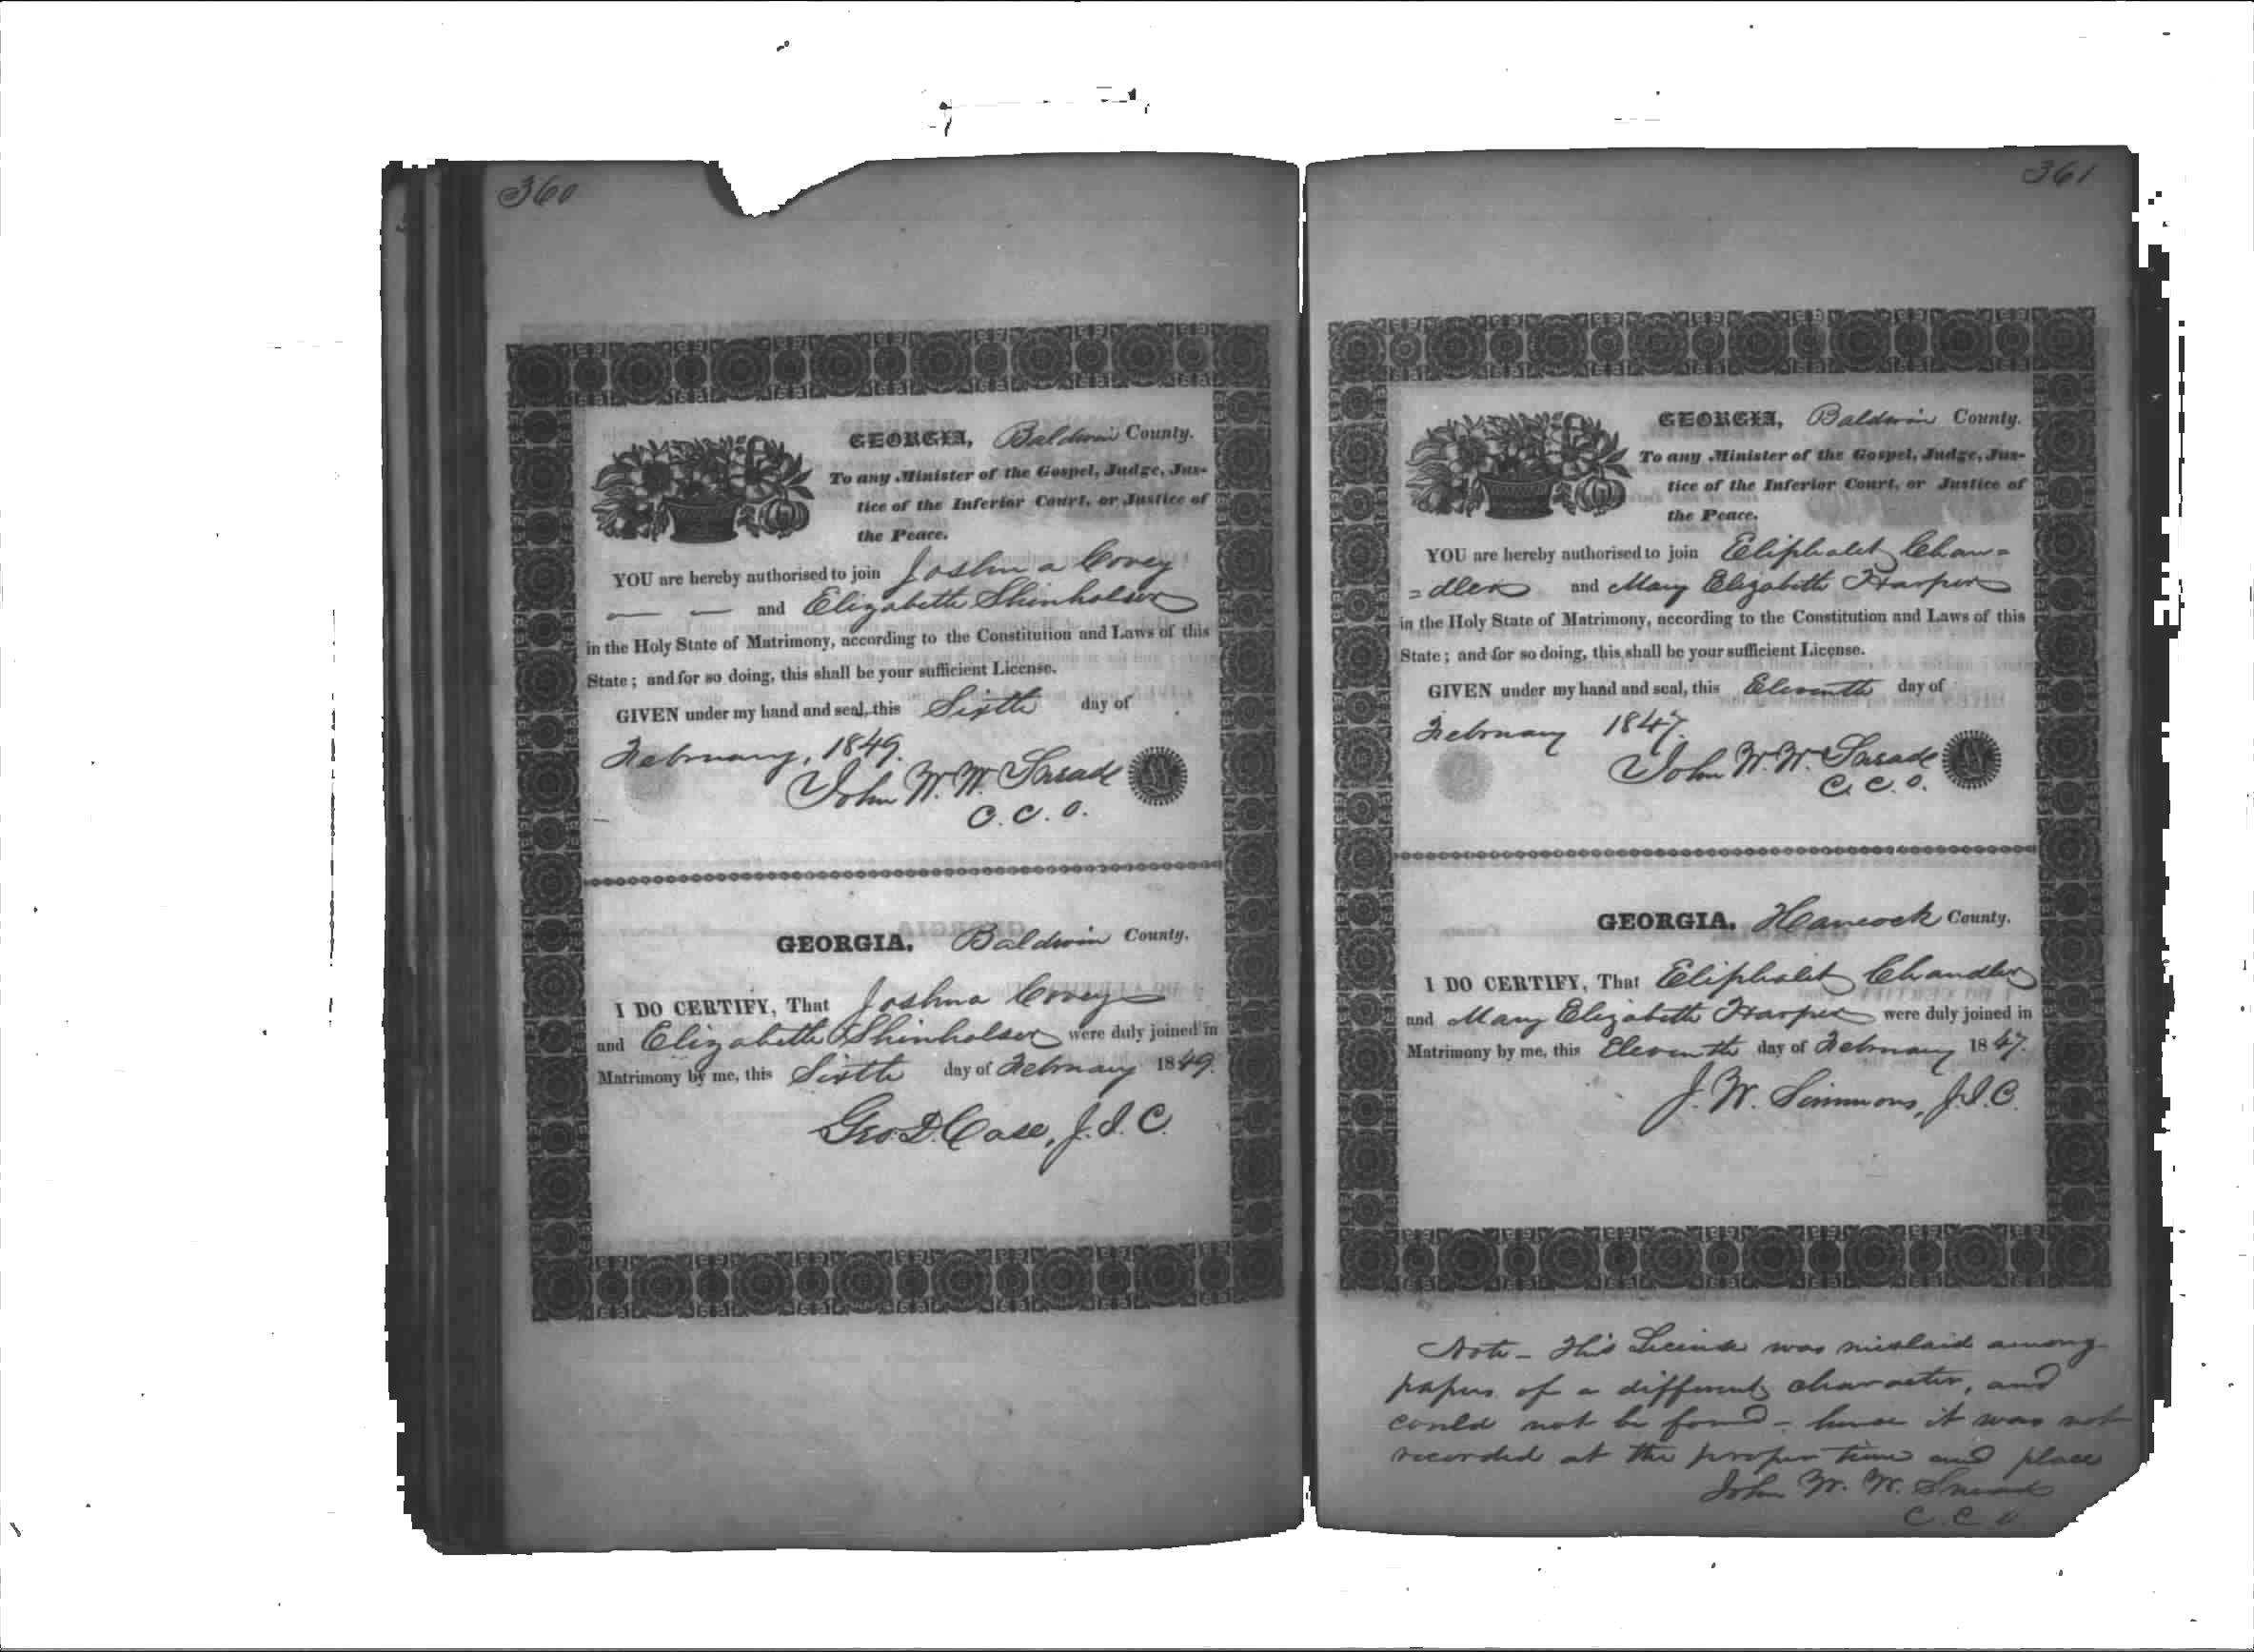 360
GEORGIA, Baldwin County.
To any Minister of the Gospel, Judge, Jus-
tice of the Inferior Court, or Justice of
the Peace.
YOU are hereby authorised to join Joshua Covey
— — and Elizabeth Shinholser
in the Holy State of Matrimony, according to the Constitution and Laws of this
State; and for so doing, this shall be your sufficient License.
GIVEN under my hand and seal, this Sixth day of
February, 1849.
John W. W. Snead
C. C. O.
GEORGIA, Baldwin County.
I DO CERTIFY, That Joshua Covey
and Elizabeth Shinholser were duly joined in
Matrimony by me, this Sixth day of February 1849.
Geo. D. Case, J. I. C.
361
GEORGIA, Baldwin County.
To any Minister of the Gospel, Judge, Jus-
tice of the Inferior Court, or Justice of
the Peace.
YOU are hereby authorised to join Eliphalet Chan=
=dler and Mary Elizabeth Harper
in the Holy State of Matrimony, according to the Constitution and Laws of this
State; and for so doing, this shall be your sufficient License.
GIVEN under my hand and seal, this Eleventh day of
February 1847.
John W. W. Snead
C. C. O.
GEORGIA, Hancock County.
I DO CERTIFY, That Eliphalet Chandler
and Mary Elizabeth Harper were duly joined in
Matrimony by me, this Eleventh day of February 1847.
J. W. Simmons, J. I. C.
Note - This License was mislaid among
papers of a different character, and
could not be found - hence it was not
recorded at the proper time and place
John W. W. Snead
C. C. O